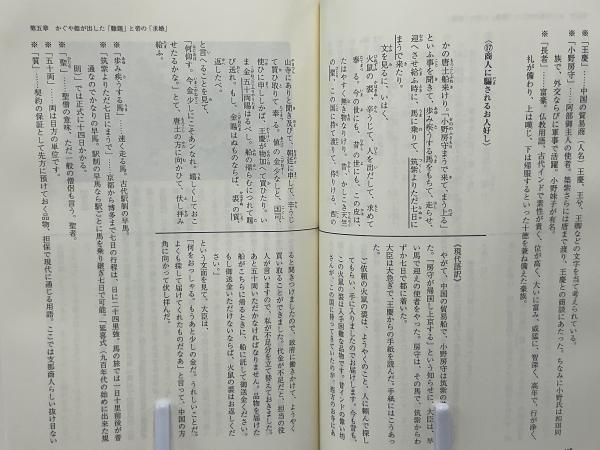 ※「王慶」……中国の貿易商(人名)。王慶、王卿などの文字を当て考えられている。
※「小野房守」……阿部御主人の使者。
族で、外交ならびに軍事で活躍。小野妹子が有名。
※「長者」……富豪。仏教用語。古代インドで素性が貴く、位が高く、大いに富み、威猛に、智深く、高年で、行が浄く、
礼が備わり、上は嘆じ、下は帰服するといった十徳を兼ね備えた豪族。
⑰商人に騙されるお人好し
かの唐土船来けり。「小野房守まうで来て、まう上る」
といふ事を聞きて、歩み疾うする馬をもちて、走らせ、
迎へさせ給ふ時に、馬に乗りて、筑紫よりただ七日に
まうで来たり。
文を見るに、いはく、
火鼠の裘、辛うじて、人を出だして、求めて
奉る。今の世にも、昔の世にも、この皮は、
たはやすく無き物なりけり。昔、かしこき天竺
の聖、この国に持て渡りて、侍りける、西の
《現代語訳》
やがて、中国の貿易船で、小野房守は筑紫の
た。「房守が帰国し上京する」という知らせに、大臣は、早
い馬で迎えの使者をやった。房守は、その馬で、筑紫からわ
ずか七日で都に着いた。
大臣は大急ぎで王慶からの手紙を読んだ。手紙にはこうあっ
ご依頼の火鼠の裘は、ようやくのこと、人に頼んで探し
てもらい、手に入りましたのでお届けします。今も昔も、
この火鼠の裘は入手困難な品物です。昔インドの偉い坊
第五章 かぐや姫が出した「難題」と帝の「求婚」
山寺にありと聞き及びて、朝廷に申して、辛うじ
て買ひ取りて奉る。値の金少なしと、国司、
使ひに申ししかば、王慶が物加へて買ひたり。い
ま金五十両賜はるべし。船の帰らむにつけて賜
び送れ。もし、金賜はぬものならば、裘の質、
返したべ。
と言へることを見て、
「何仰す。今金少しにこそあンなれ。嬉しくしておこ
せたるかな。」とて、唐土の方に向かひて、伏し拝み
給ふ。
ると聞きつけましたので、政府に働きかけて、ようやく
買い取ることができました。代金が不足だと、担当の役
人が言いますので、私が不足分を立て替えておきました。
あと五十両いただかなければなりません。品物を届けた
船がこちらに帰るときに、船に託して御送金ください。
もし御送金いただけないならば、火鼠の裘はお返しくだ
さい。」
という文面を見て、大臣は、
「何をおっしゃる。もうあと少しの金だ。うれしいことだ。
よくも探して届けてくれたものだなあ」と言って、中国の方
角に向かって伏し拝んだ。
※「歩み疾うする馬」……速く走る馬。古代駅制の早馬。
※「筑紫よりただ七日にまうで」……京都から博多まで七日の行程は、日に二十四里強。馬の旅では一日十里前後が普
通なのでかなりの早馬。駅制の早馬なら駅ごとに馬を乗り継ぎ七日で可能。『延喜式(九百年代の始めに出来た規
則)』では正式に十四日かかる。
※「聖」……聖僧の意味。ただ一般の僧侶も言う。聖者。
※「五十両」……両は目方の単位です。
※「質」……契約の保証として先方に預けておく品物。担保で現代に通じる用語。ここでは支那商人らしい抜け目ない